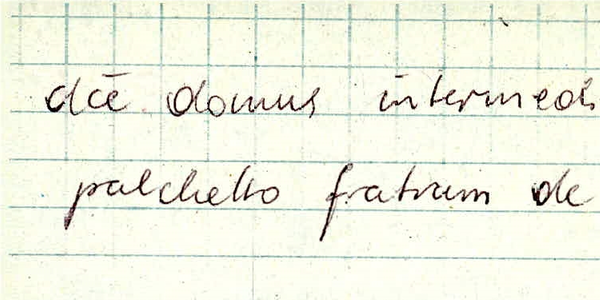 dcē domus intermedi
palchetto fratrum de